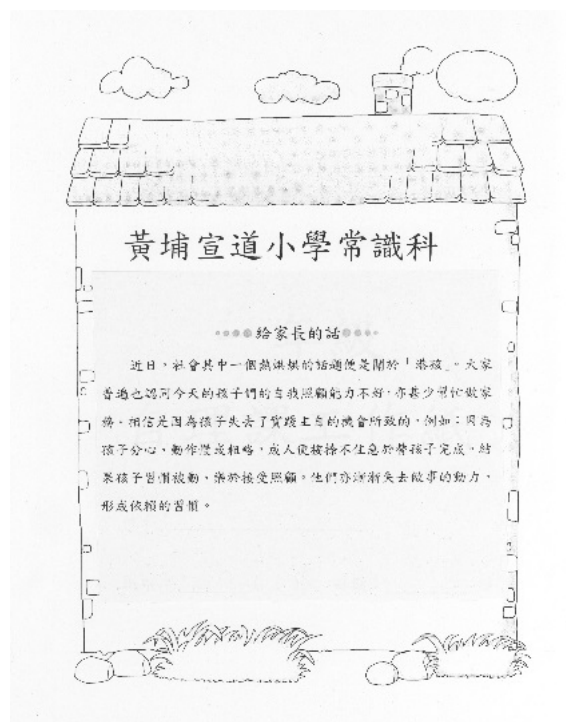 黃埔宣道小學常識科
給家長的話
近日，社會其中一個熱烘烘的話題便是關於「港孩」。大家
普遍也認同今天的孩子們的自我照顧能力不好，亦甚少幫忙做家
務。相信是因為孩子失去了實踐主自的機會所致的，例如：因為
孩子分心、動作慢或粗略，成人便按捺不住急於替孩子完成。結
果孩子習慣被動、樂於接受照顧。他們亦漸漸失去做事的動力、
形成依賴的習慣。